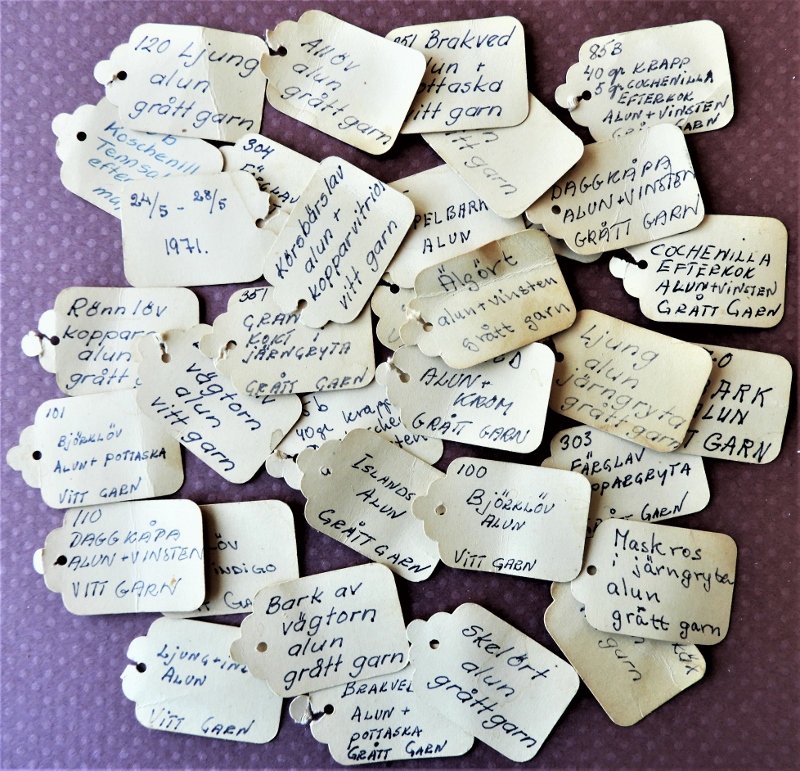 120 Ljung
alun
grått garn
Allöv
alun
grått garn
Brakved
vitt garn
85B
40 gr KRAPP
5 gr COCHENILLA
EFTERKOK
ALUN+VINSTEN
GRÅTT GARN
Koschenill
304
24/5 - 28/5
1971.
Körsbärslav
alun +
kopparvitriol
vitt garn
ALUN
vitt garn
DAGGKÅPA
ALUN+VINSTEN
GRÅTT GARN
COCHENILLA
EFTERKOK
ALUN+VINSTEN
GRÅTT GARN
Älgört
alun+vinsten
grått garn
Rönnlöv
alun
351
GRAN
KOKT I
JÄRNGRYTA
GRÅTT GARN
vägtorn
alun
vitt garn
ALUN+
KROM
GRÅTT GARN
Ljung
alun
järngryta
grått garn
BARK
ALUN
GARN
101
BJÖRKLÖV
ALUN+ POTTASKA
VITT GARN
40 gr krapp
ISLANDS
ALUN
GRÅTT GARN
100
BJÖRKLÖV
ALUN
VITT GARN
303
FÄRGLAV
GRÅTT GARN
110
DAGGKÅPA
ALUN+VINSTEN
VITT GARN
INDIGO
Maskros
i järngryta
alun
grått garn
garn
Bark av
vägtorn
alun
grått garn
LJUNG+
ALUN
VITT GARN
BRAKVED
ALUN+
POTTASKA
GRÅTT GARN
Skelört
alun
grått garn